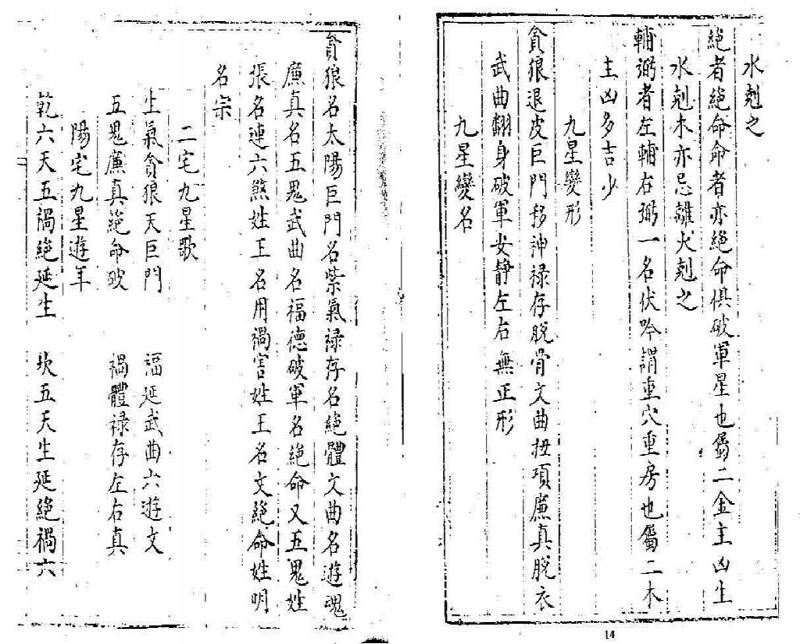 水剋之
絕者絕命命者亦絕命俱破軍星也屬二金主凶生
水剋木亦忌離火剋之
輔弼者左輔右弼一名伏吟謂重穴重房也屬二木
主凶多吉少
九星變形
貪狼退皮巨門移神祿存脫骨文曲扭項廉真脫衣
武曲翻身破軍女靜左右無正形
九星變名
14
貪狼名太陽巨門名紫氣祿存名絕體文曲名遊魂
廉真名五鬼武曲名福德破軍名絕命又五鬼姓
張名連六煞姓王名用禍害姓王名文絕命姓明
名宗
二宅九星歌
生氣貪狼天巨門 福延武曲六遊文
五鬼廉真絕命破 禍體祿存左右真
陽宅九星遊年
乾六天五禍絕延生 坎五天生延絕禍六